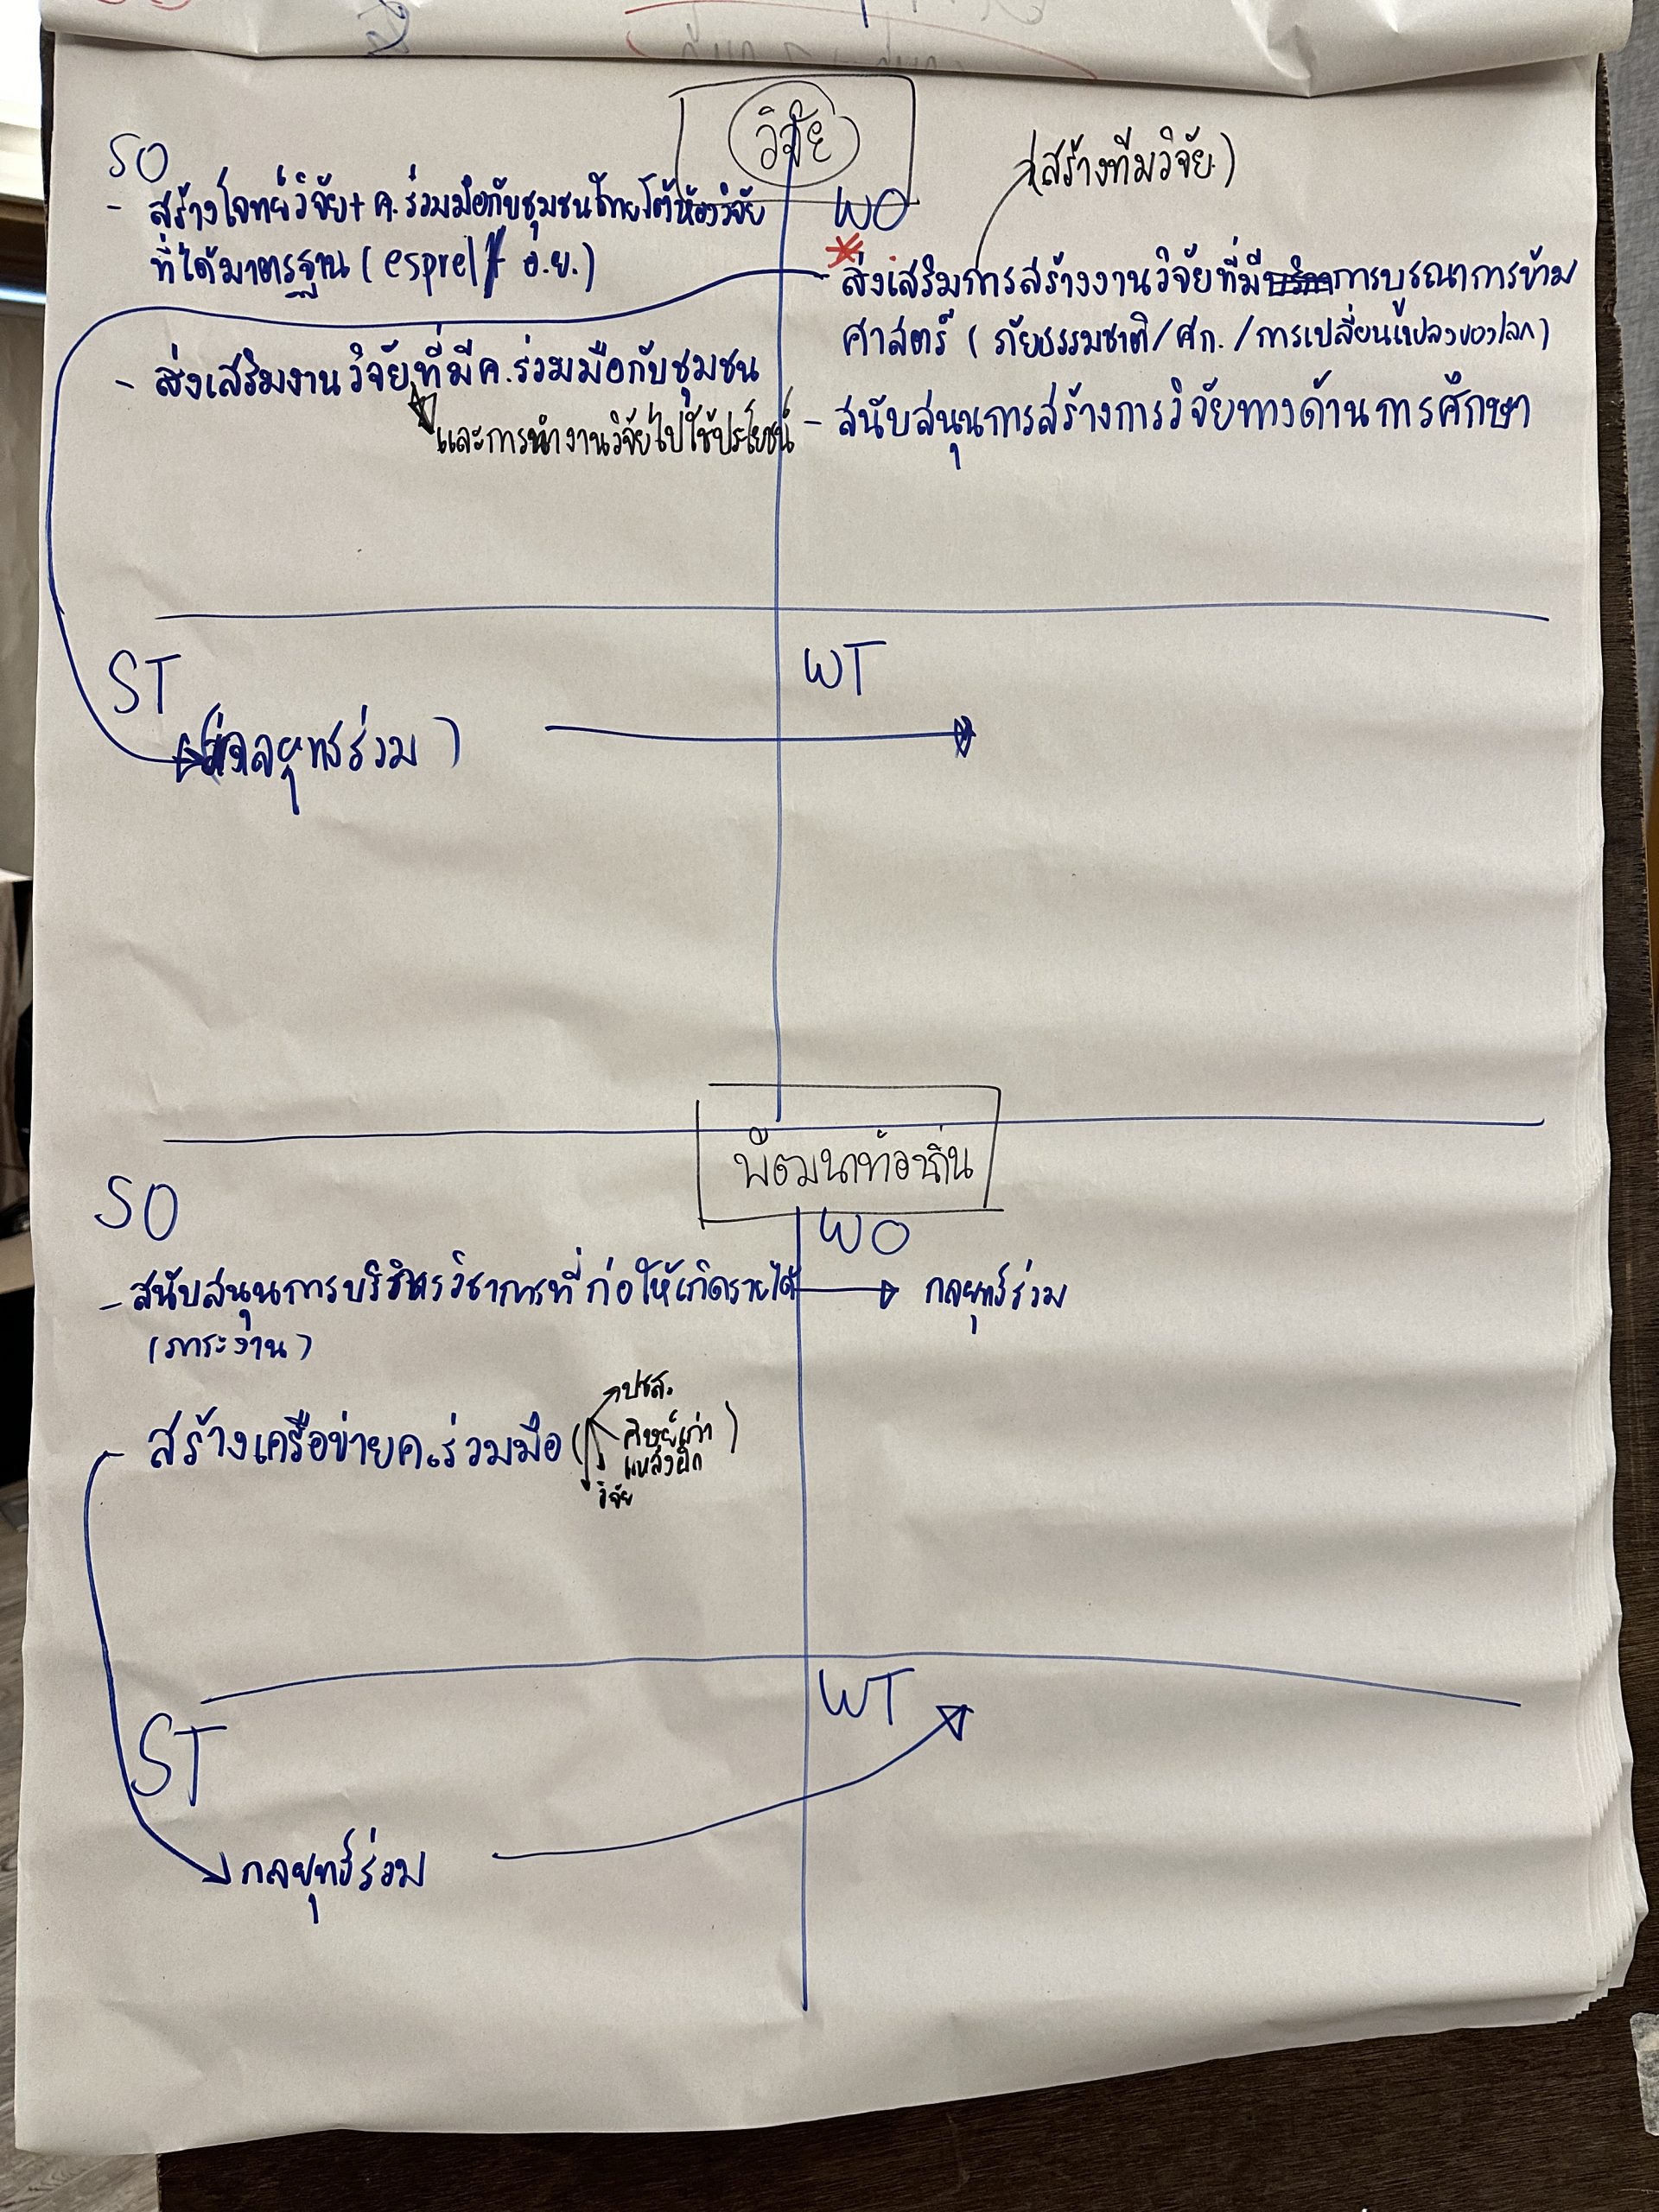 วิจัย
SO
- สร้างโจทย์วิจัย + ค.ร่วมมือกับชุมชนภายใต้ห้องวิจัย
ที่ได้มาตรฐาน (esprel / อ.ย.)
- ส่งเสริมงานวิจัยที่มีค.ร่วมมือกับชุมชน
และการนำงานวิจัยไปใช้ประโยชน์
(สร้างทีมวิจัย)
WO
- ส่งเสริมการสร้างงานวิจัยที่มีการบูรณาการข้าม
ศาสตร์ (ภัยธรรมชาติ/ศก./การเปลี่ยนแปลงของโลก)
- สนับสนุนการสร้างการวิจัยทางด้านการศึกษา
ST
กลยุทธร่วม)
WT
พัฒนาท้องถิ่น
SO
- สนับสนุนการบริการวิชาการที่ก่อให้เกิดรายได้
(ภาระงาน)
- สร้างเครือข่ายค.ร่วมมือ (
ปชส.
ศิษย์เก่า )
แหล่งฝึก
วิจัย
WO
กลยุทธ์ร่วม
ST
กลยุทธ์ร่วม
WT